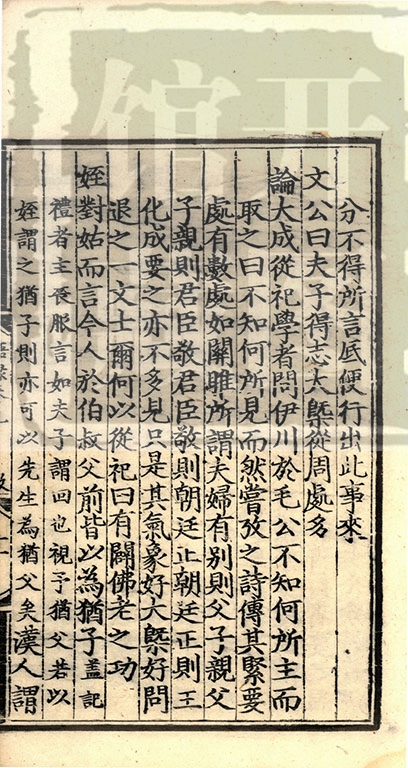 分不得所言底便行出此事來
文公曰夫子得志大槩從周處多
論大成從祀學者問伊川於毛公不知何所主而
取之曰不知何所見而然嘗攷之詩傳其緊要
處有數處如關雎所謂夫婦有别則父子親父
子親則君臣敬君臣敬則朝廷正朝廷正則王
化成要之亦不多見只是其氣象好大槩好問
退之一文士爾何以從祀曰有闢佛老之功
姪對姑而言今人於伯叔父前皆以為猶子盖記
禮者主喪服言如夫子謂回也視予猶父若以
姪謂之猶子則亦可以先生為猶父矣漢人謂